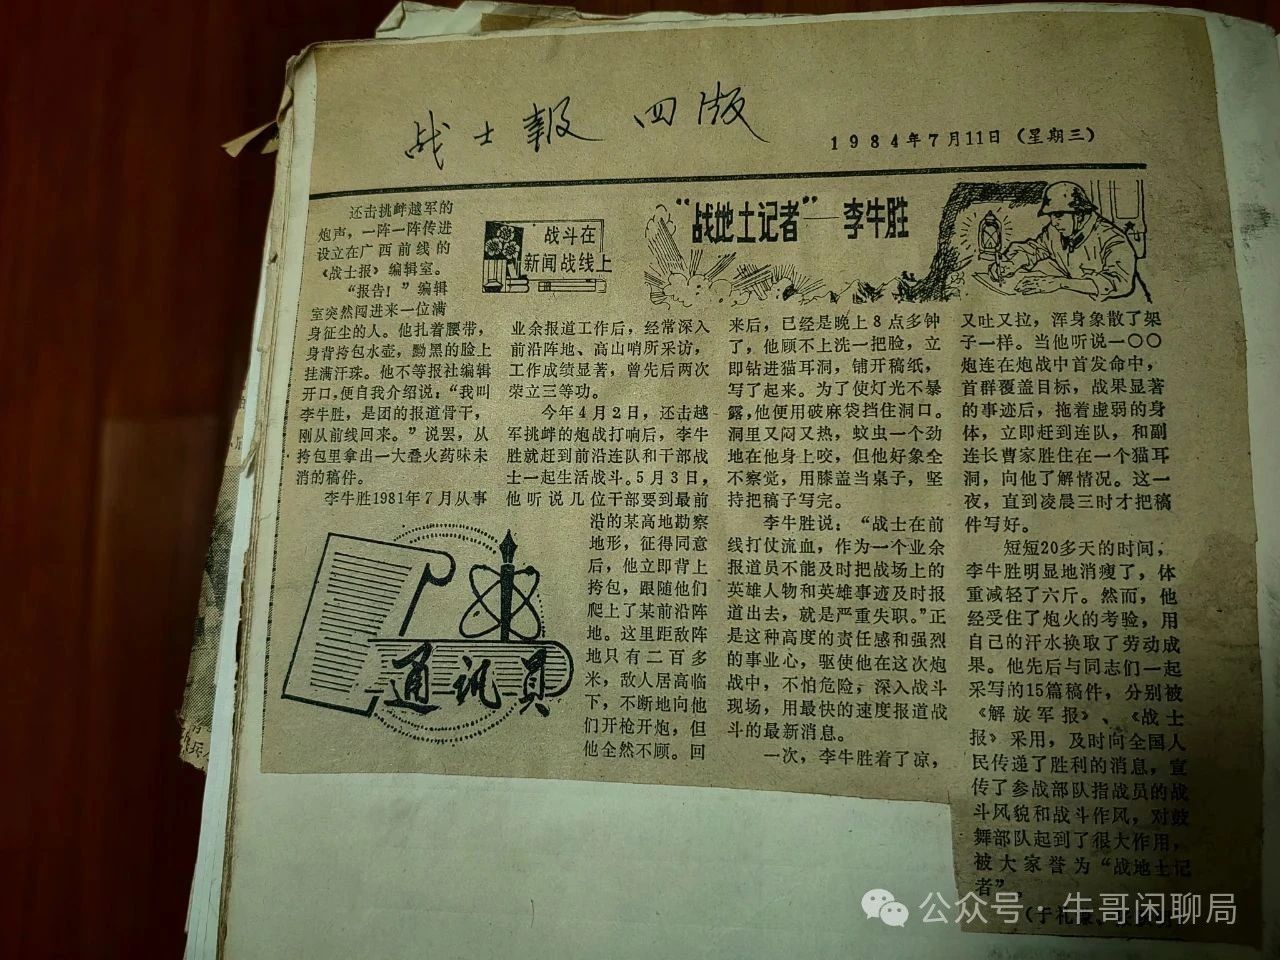 战士報 四版
1984年7月11日（星期三）
战斗在
新闻战线上
“战地土记者”——李牛胜
还击挑衅越军的
炮声，一阵一阵传进
设立在广西前线的
《战士报》编辑室。
“报告！”编辑
室突然闯进来一位满
身征尘的人。他扎着腰带，
身背挎包水壶，黝黑的脸上
挂满汗珠。他不等报社编辑
开口，便自我介绍说：“我叫
李牛胜，是团的报道骨干，
刚从前线回来。”说罢，从
挎包里拿出一大叠火药味未
消的稿件。
李牛胜1981年7月从事
业余报道工作后，经常深入
前沿阵地、高山哨所采访，
工作成绩显著，曾先后两次
荣立三等功。
今年4月2日，还击越
军挑衅的炮战打响后，李牛
胜就赶到前沿连队和干部战
士一起生活战斗。5月3日，
他听说几位干部要到最前
沿的某高地勘察
地形，征得同意
后，他立即背上
挎包，跟随他们
爬上了某前沿阵
地。这里距敌阵
地只有二百多
米，敌人居高临
下，不断地向他
们开枪开炮，但
他全然不顾。回
来后，已经是晚上8点多钟
了，他顾不上洗一把脸，立
即钻进猫耳洞，铺开稿纸，
写了起来。为了使灯光不暴
露，他便用破麻袋挡住洞口。
洞里又闷又热，蚊虫一个劲
地在他身上咬，但他好象全
不察觉，用膝盖当桌子，坚
持把稿子写完。
李牛胜说：“战士在前
线打仗流血，作为一个业余
报道员不能及时把战场上的
英雄人物和英雄事迹及时报
道出去，就是严重失职。”正
是这种高度的责任感和强烈
的事业心，驱使他在这次炮
战中，不怕危险，深入战斗
现场，用最快的速度报道战
斗的最新消息。
一次，李牛胜着了凉，
又吐又拉，浑身象散了架
子一样。当他听说一〇〇
炮连在炮战中首发命中，
首群覆盖目标，战果显著
的事迹后，拖着虚弱的身
体，立即赶到连队，和副
连长曹家胜住在一个猫耳
洞，向他了解情况。这一
夜，直到凌晨三时才把稿
件写好。
短短20多天的时间，
李牛胜明显地消瘦了，体
重减轻了六斤。然而，他
经受住了炮火的考验，用
自己的汗水换取了劳动成
果。他先后与同志们一起
采写的15篇稿件，分别被
《解放军报》、《战士
报》采用，及时向全国人
民传递了胜利的消息，宣
传了参战部队指战员的战
斗风貌和战斗作风，对鼓
舞部队起到了很大作用，
被大家誉为“战地土记
者”。
通讯员
公众号·牛哥闲聊局